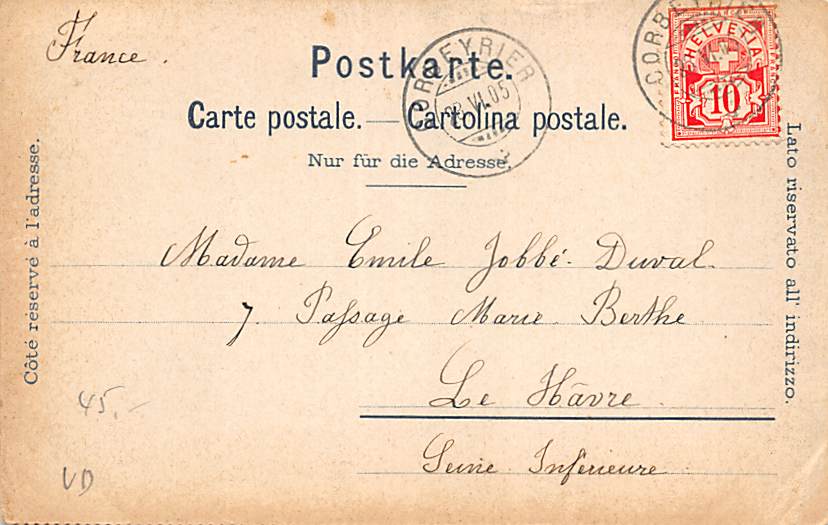 France.
Postkarte.
Carte postale. — Cartolina postale.
Nur für die Adresse.
CORBEYRIER
23.VI.05
HELVETIA
10
CORBEYRIER
Côté réservé à l'adresse.
Lato riservato all' indirizzo.
Madame Emile Jobbé-Duval.
7. Passage Marie Berthe
Le Hâvre
Seine Inférieure
45.-
VD